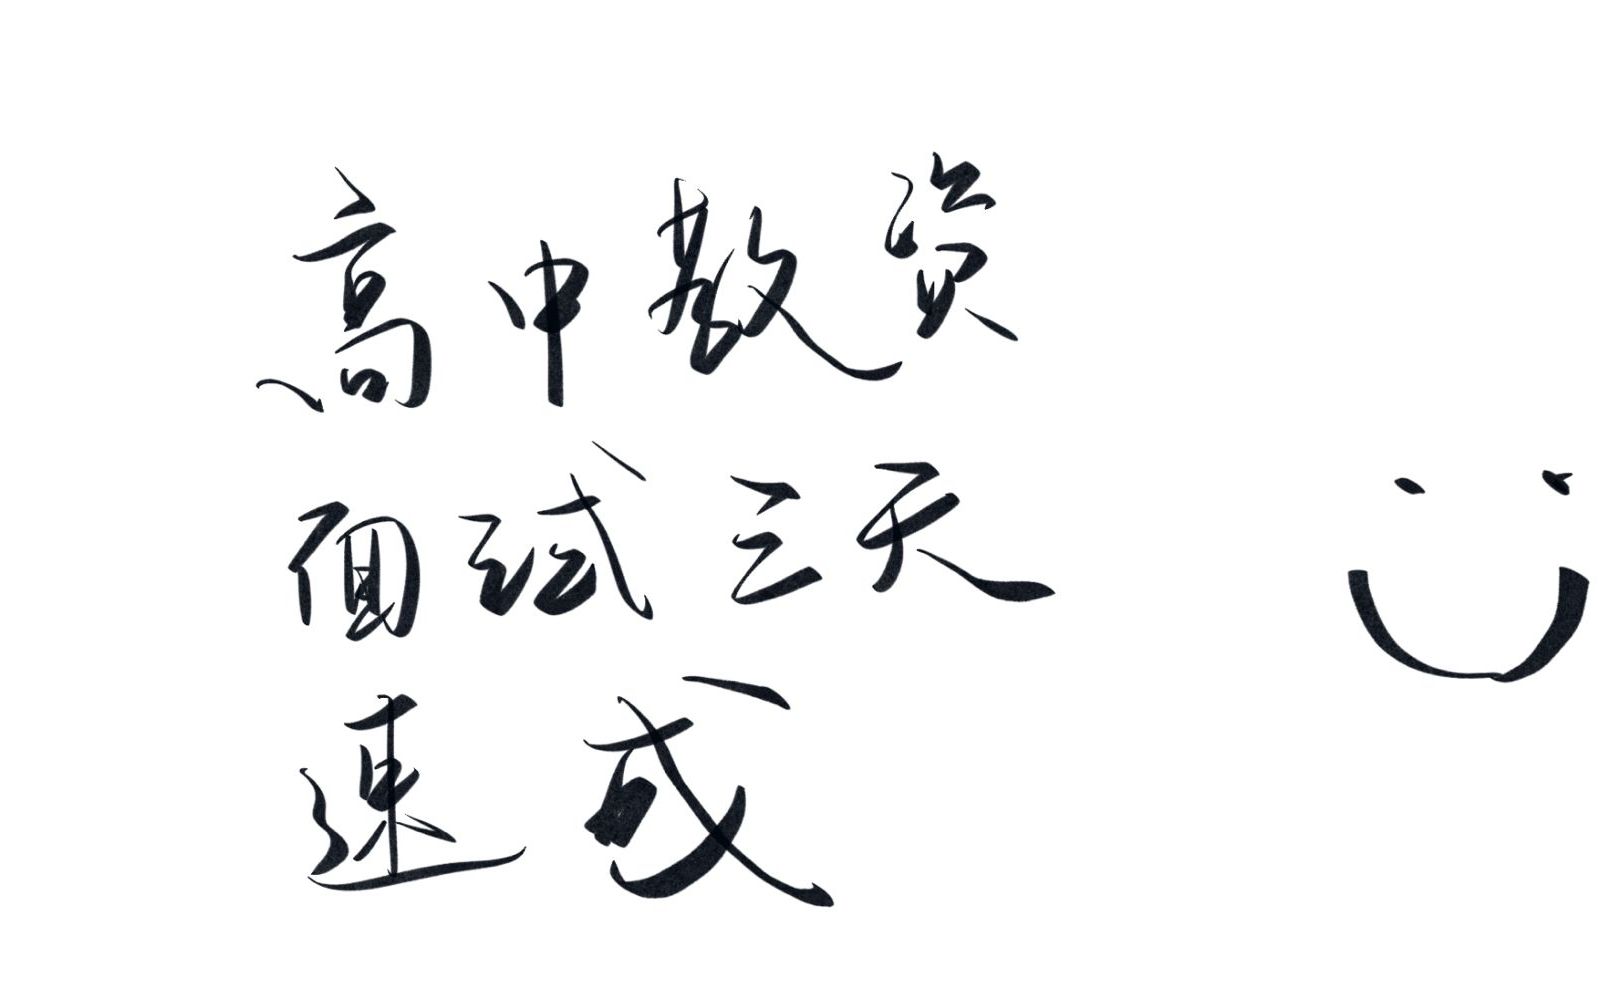 高中教资
面试三天
速成